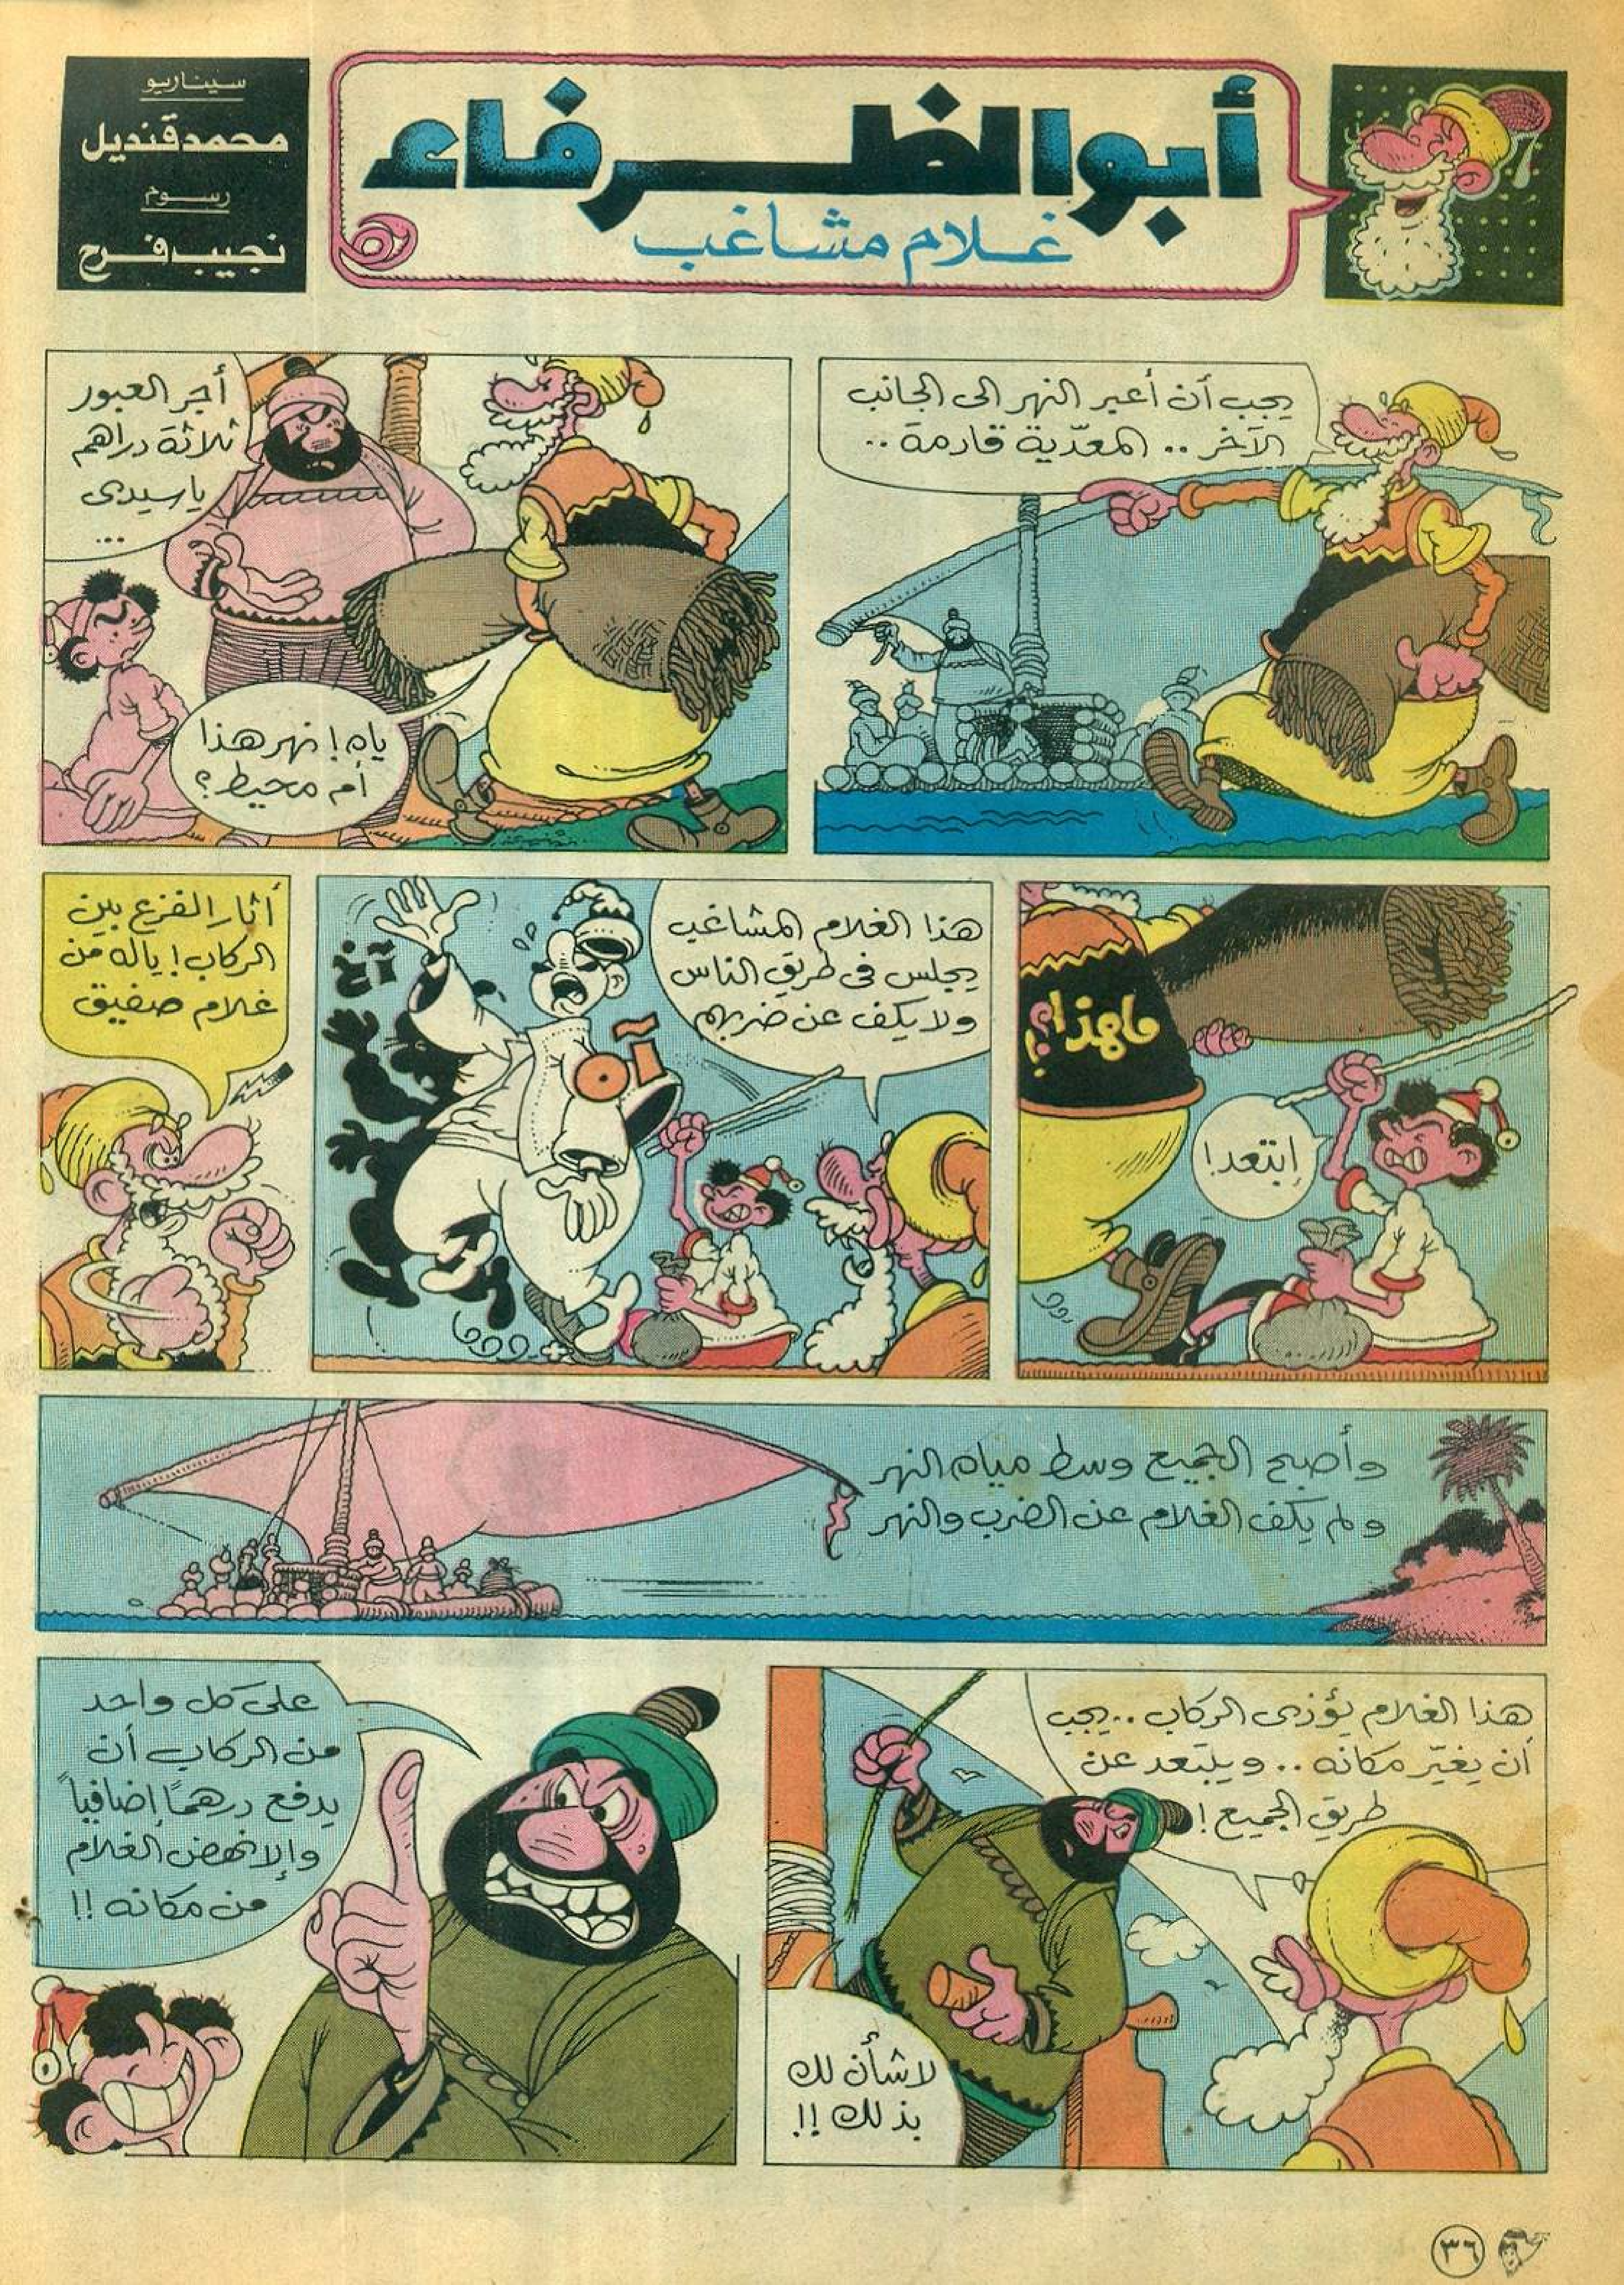 أبو الظرفاء
غلام مشاغب
سيناريو
محمد قنديل
رسوم
نجيب فرح
يجب أن أعبر النهر الى الجانب
الآخر .. المعدّية قادمة ..
أجر العبور
ثلاثة دراهم
ياسيدى
...
ياه! نهر هذا
أم محيط؟
ماهذا؟!
ابتعد!
هذا الغلام المشاغب
يجلس فى طريق الناس
ولا يكف عن ضربهم
آخ
آه
أثار الفزع بين
الركاب! ياله من
غلام صفيق
وأصبح الجميع وسط مياه النهر
ولم يكف الغلام عن الضرب والنهر
هذا الغلام يؤذى الركاب .. يجب
أن يغيّر مكانه .. ويبتعد عن
طريق الجميع!
لا شأن لك
بذلك!!
على كل واحد
من الركاب أن
يدفع درهمًا إضافياً
وإلا نهض الغلام
من مكانه!!
٣٦